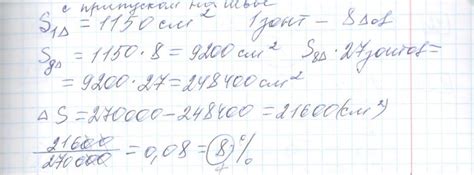 с припуском на швы
S₁Δ = 1150 см² 1 зонт – 8Δов
S₈Δ = 1150 · 8 = 9200 см² S₈Δ · 27 зонтов =
= 9200 · 27 = 248400 см²
ΔS = 270000 – 248400 = 21600 (см²)
21600/270000 = 0,08 = 8 %